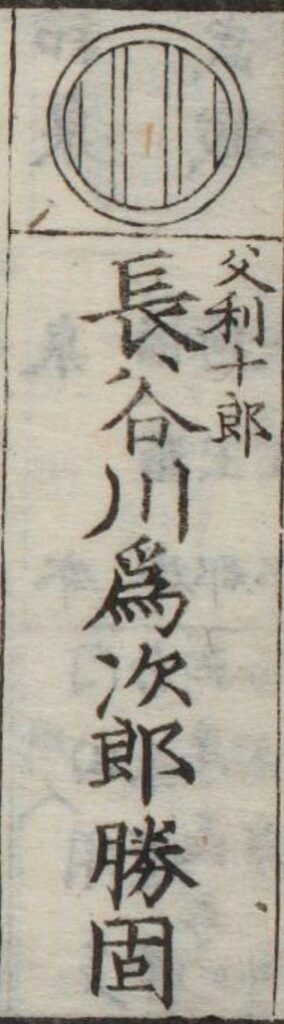 父利十郎
長谷川爲次郎勝固